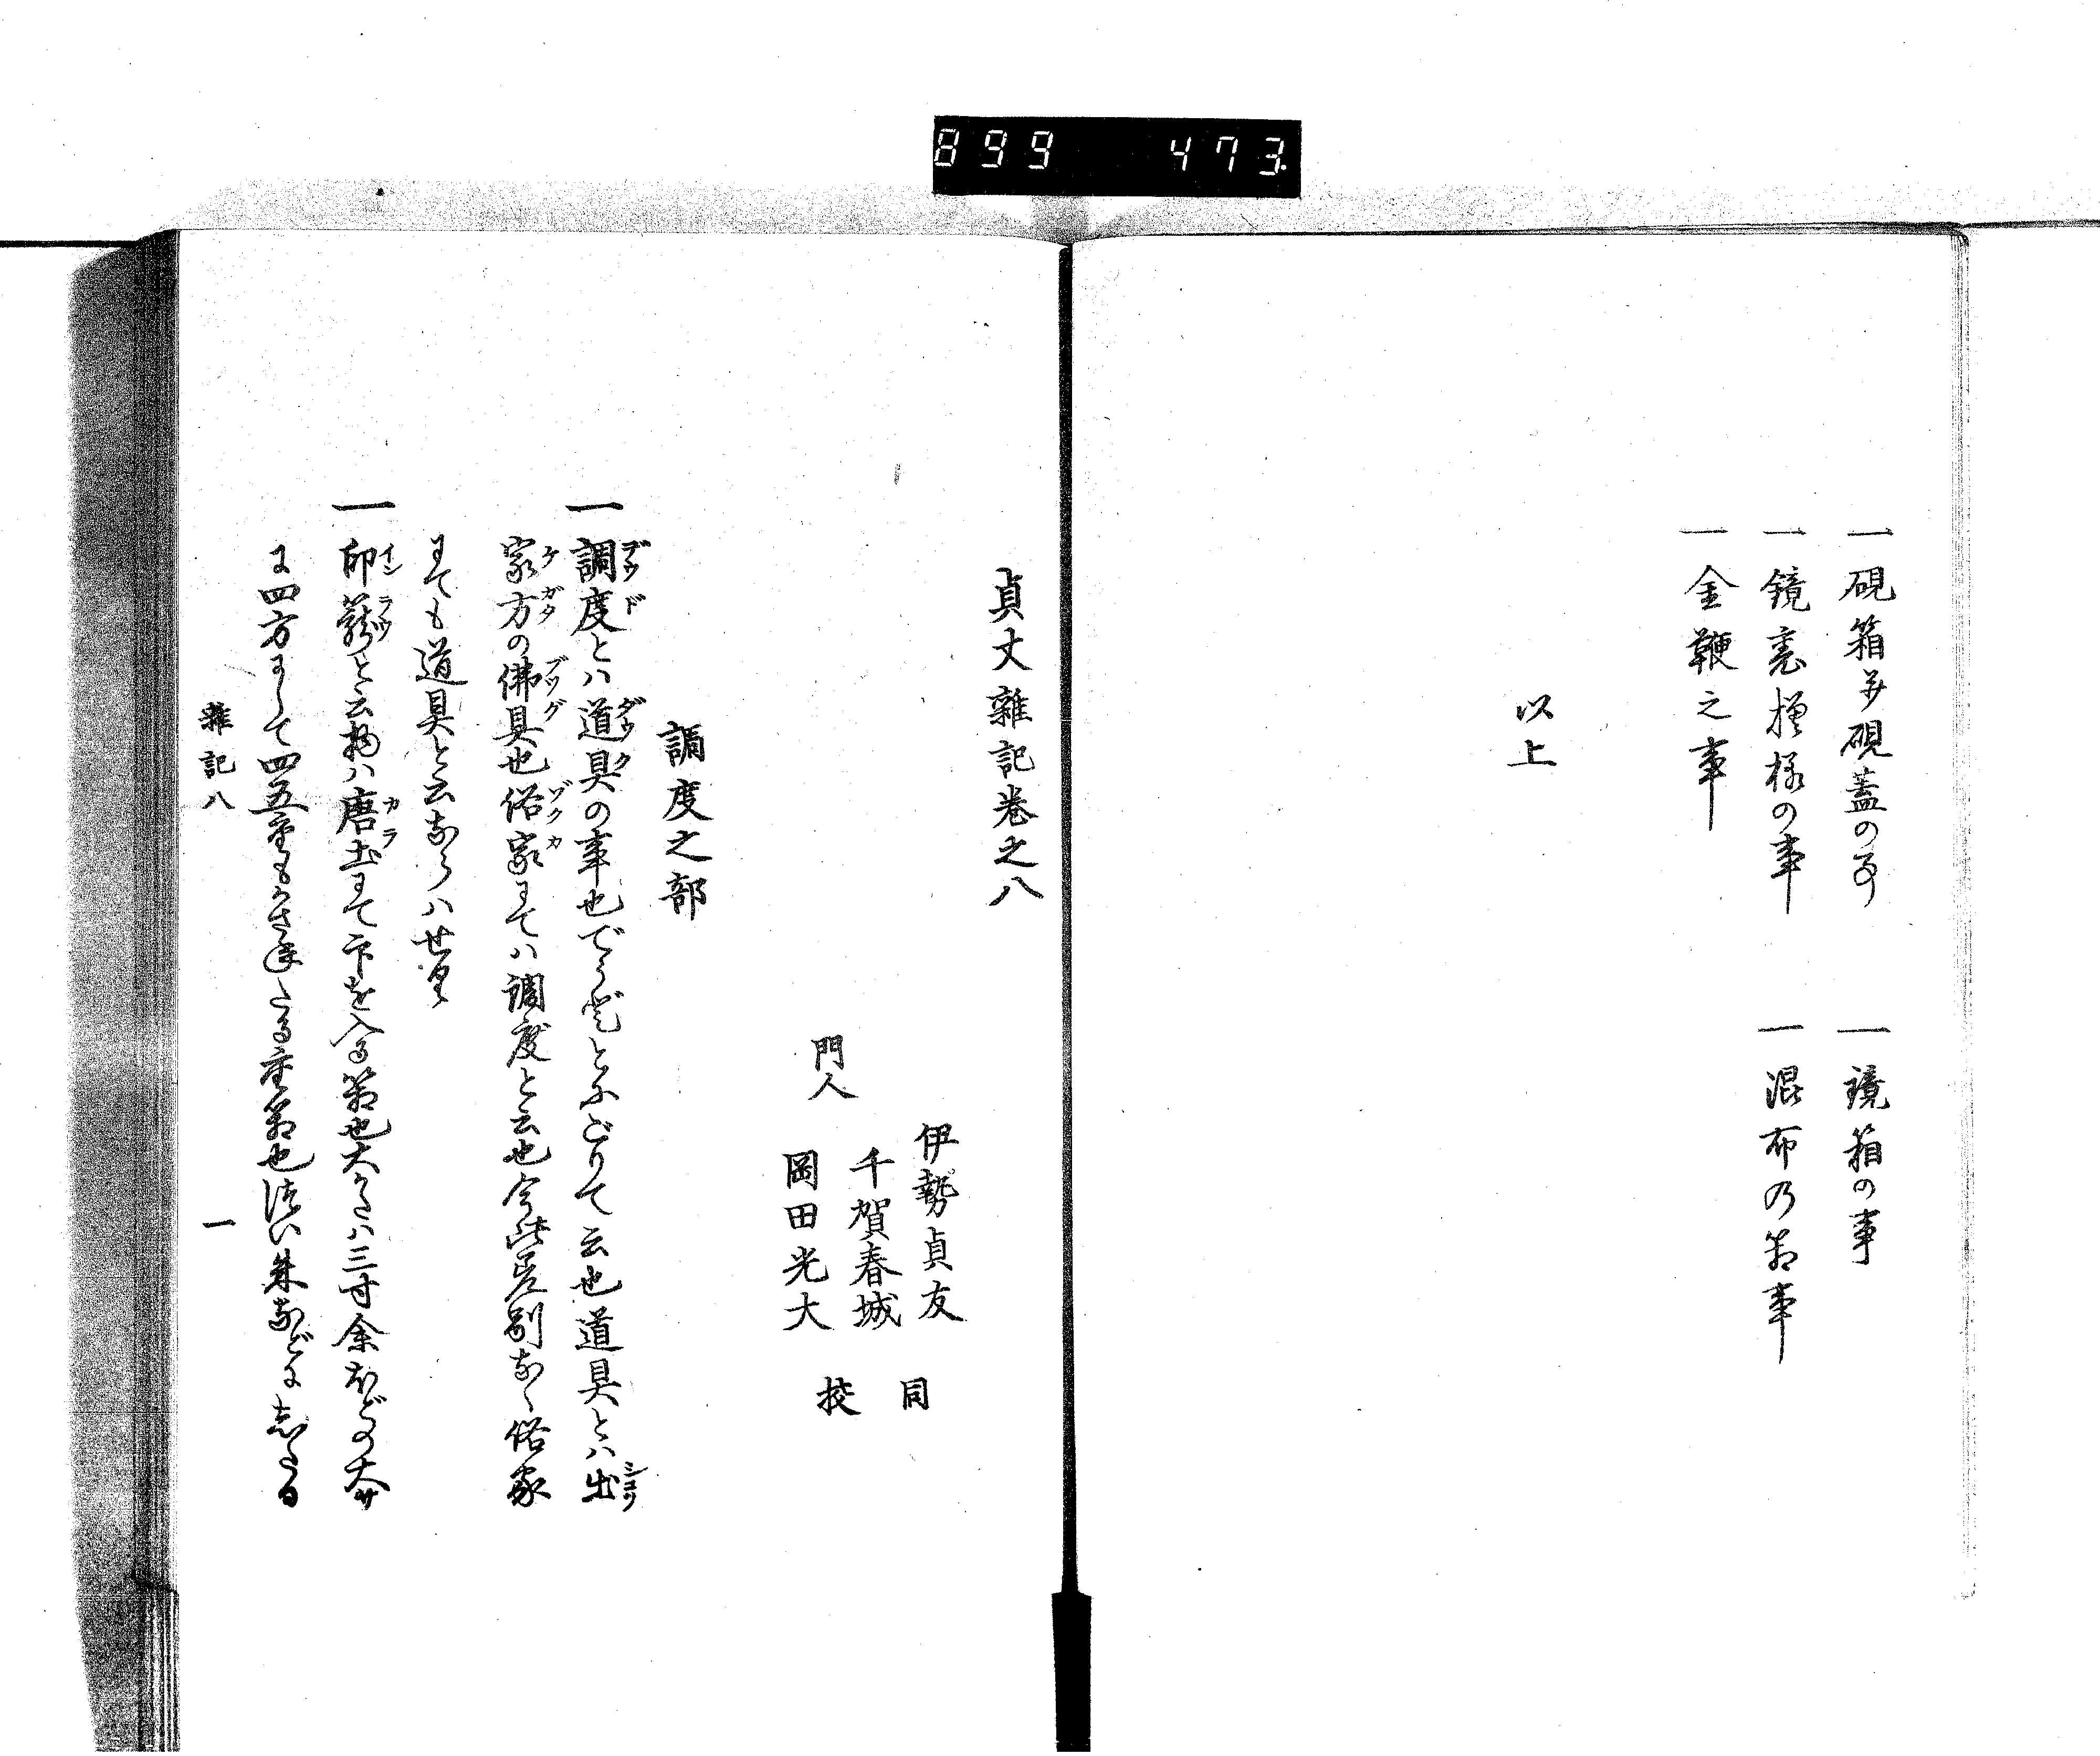 899 473
一硯箱并硯蓋の事　一鏡箱の事
一鏡裏摸様の事　一混布乃箱事
一金鞭之事
以上
貞丈雜記巻之八
伊勢貞友　同
門人　千賀春城
岡田光大　挍
調度之部
一調度とハ道具の事也でうどとにごりて云也道具とハ出
家方の佛具也俗家にてハ調度と云也今此差別なく俗家
にても道具と云ならハせり
一印籠と云物ハ唐土にて印を入る箱也大かたハ三寸余ほどの大サ
に四方にして四五重もかさねたる重箱也つい朱などにしたる
雜記八　一